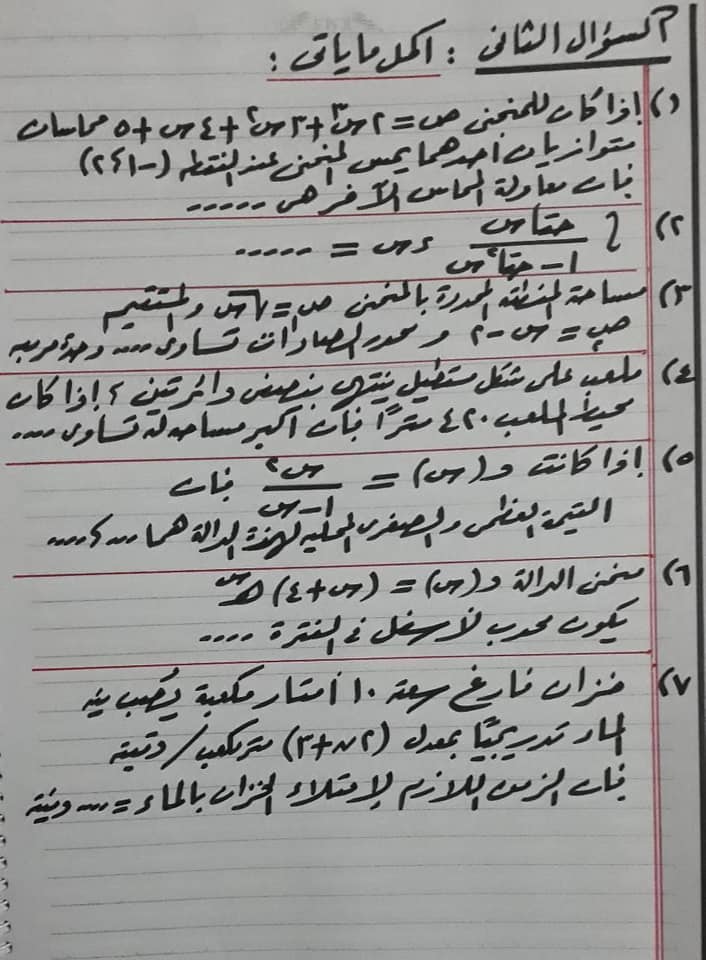 السؤال الثانى : أكمل ما يأتى :
١) إذا كان للمنحنى ص = ٢س٣ + ٣س٢ + ٤س + ٥ مماسان
متوازيان أحدهما يمس المنحنى عند النقطة (-١، ٢)
فإن معادلة المماس الآخر هى .....
٢) ∫ حتاس / ١ - حتا٢س ءس = .....
٣) مساحة المنطقة المحددة بالمنحنى ص = √س والمستقيم
ص = س - ٢ و محور الصادات تساوى .... وحدة مربعة
٤) ملعب على شكل مستطيل ينتهى بنصفى دائرتين ، إذا كان
محيط الملعب ٤٢٠ مترًا فإن أكبر مساحة له تساوى ....
٥) إذا كانت و(س) = س٢ / ١ - س فإن
القيمة العظمى والصغرى المحلية لهذه الدالة هما .... ، ....
٦) منحنى الدالة و(س) = (س + ٤) هـس
يكون محدب لأسفل فى الفترة ....
٧) خزان فارغ سعته ١٠ أمتار مكعبة يُصب فيه
الماء تدريجيًا بمعدل (٢ن + ٣) متر مكعب / دقيقة
فإن الزمن اللازم لإمتلاء الخزان بالماء = .... دقيقة